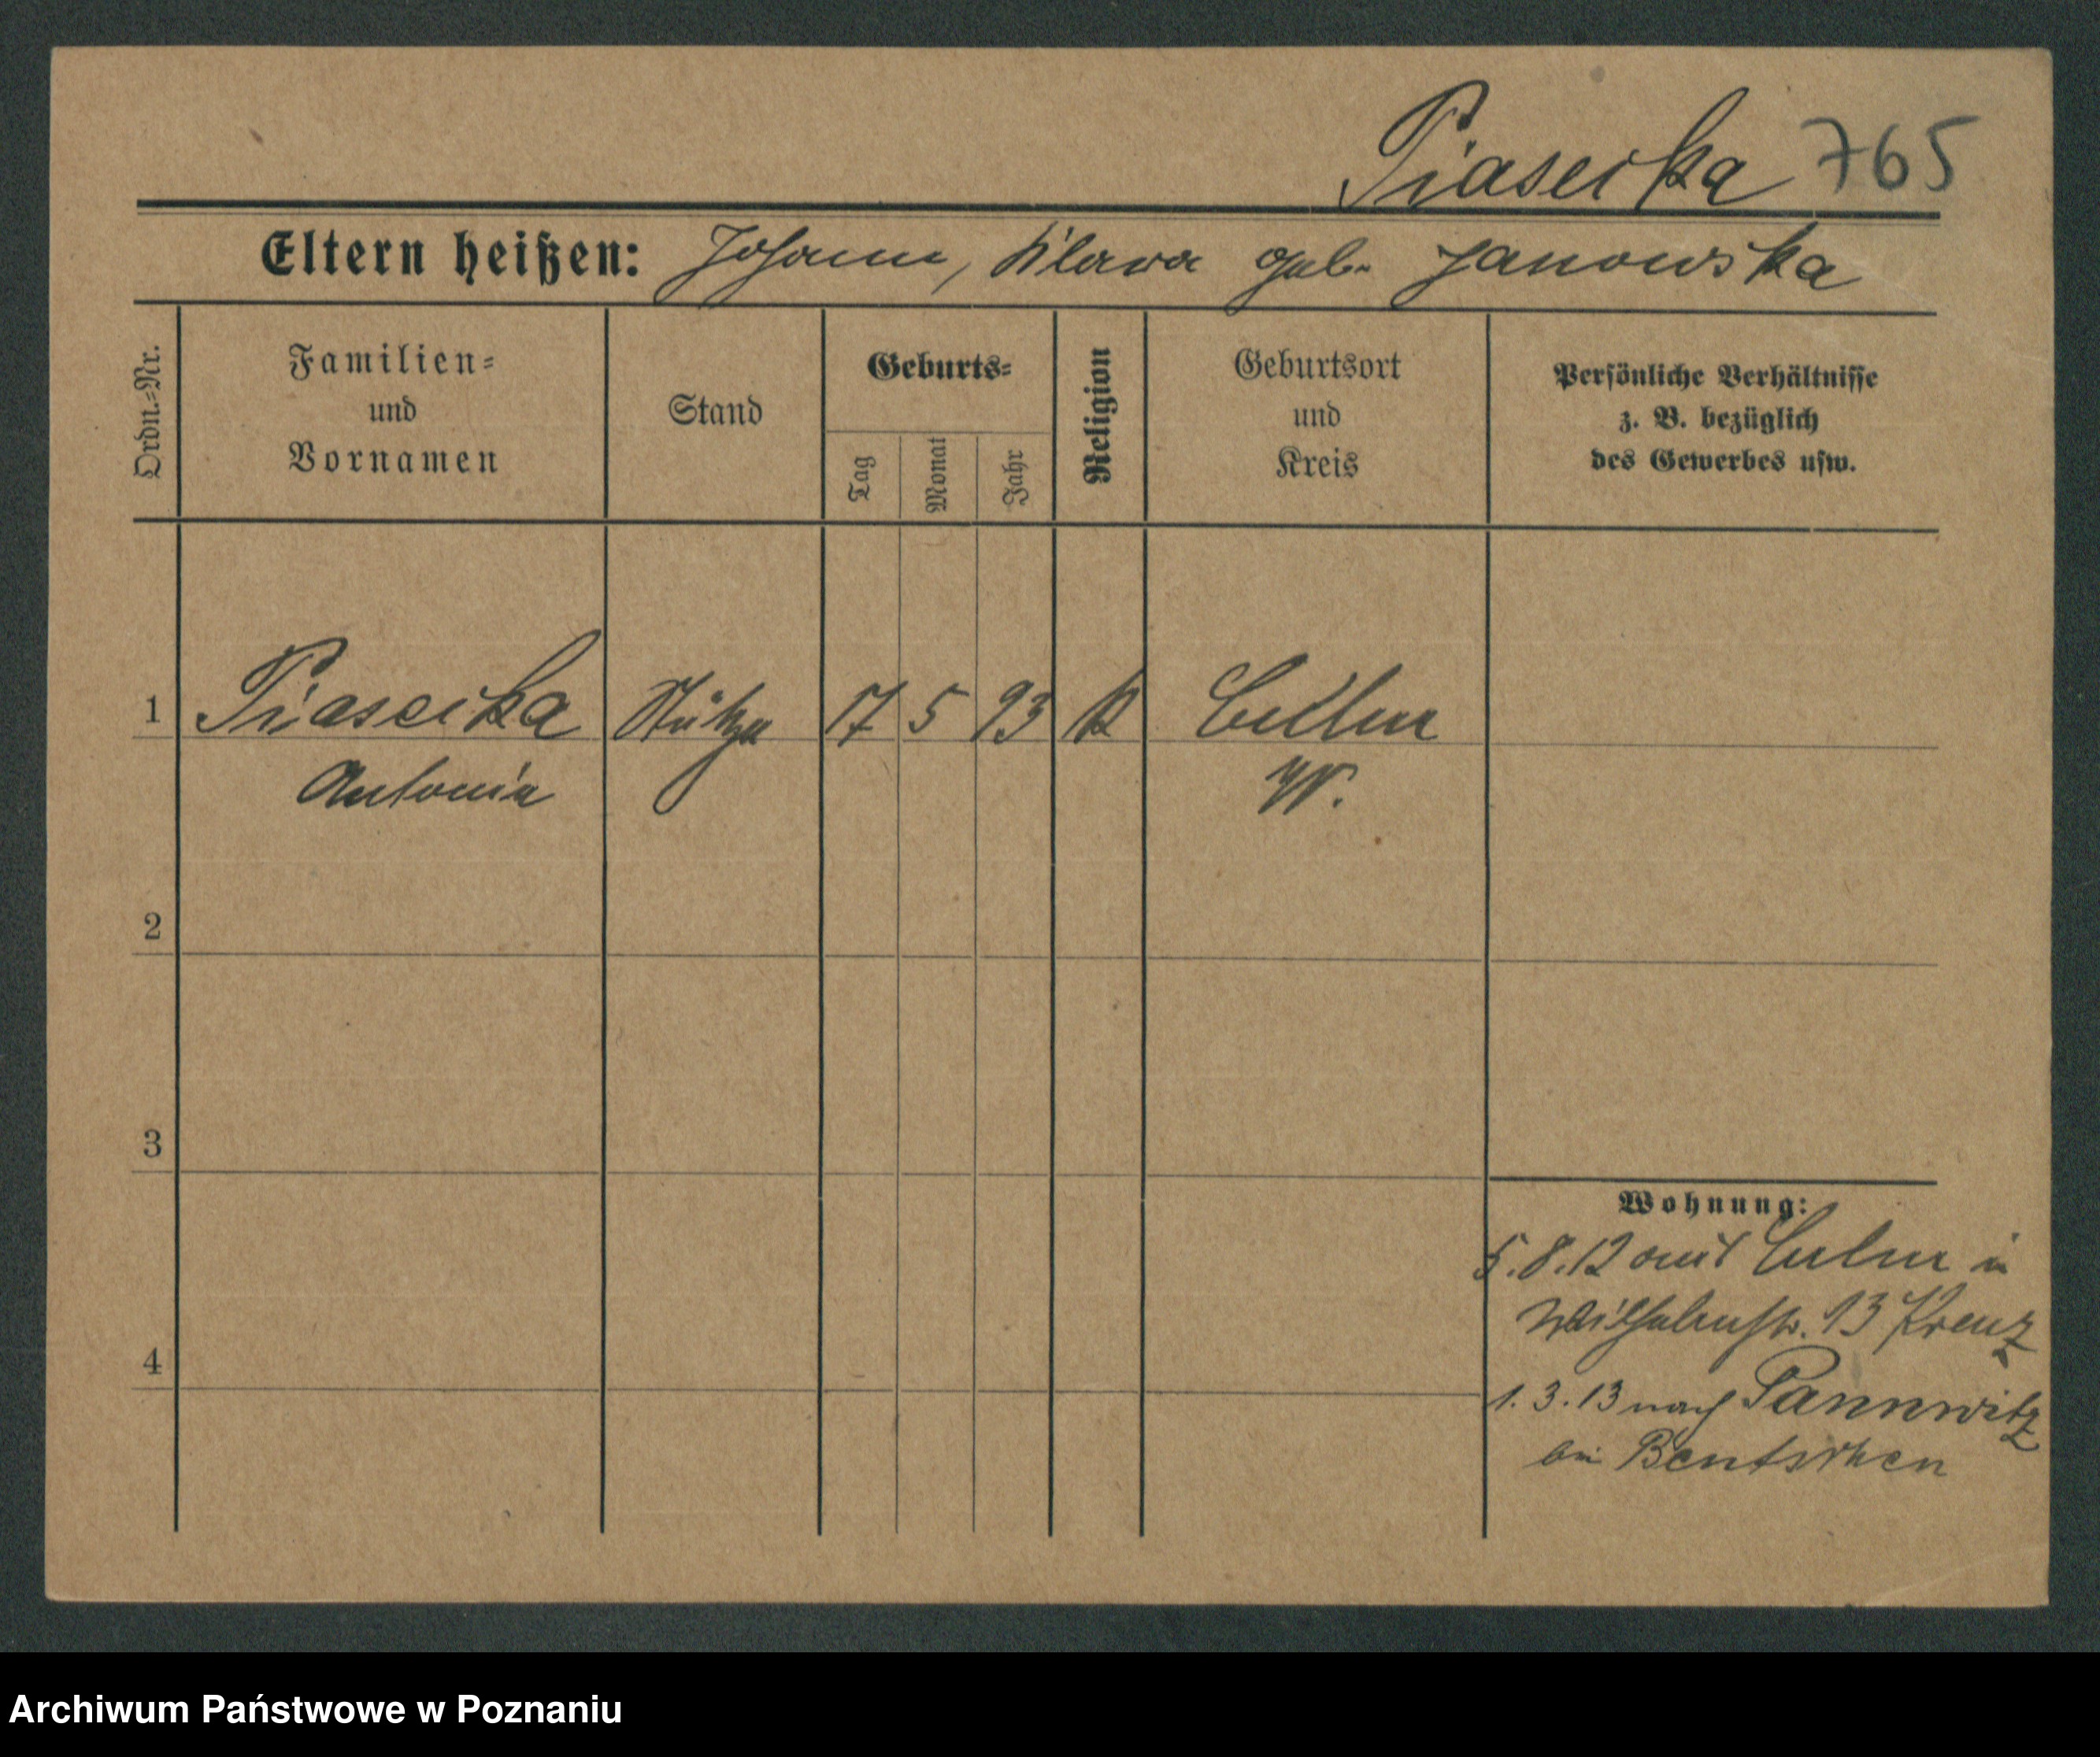 Piasecka 765
Eltern heißen: Johann, Klara geb. Janowska
Ordn.=Nr.
Familien=
und
Vornamen
Stand
Geburts=
Tag
Monat
Jahr
Religion
Geburtsort
und
Kreis
Persönliche Verhältnisse
z. B. bezüglich
des Gewerbes usw.
1 Piasecka Stütze 17 5 93 K Culm
Antonie W.
2
3
4
Wohnung:
5.8.12 aus Culm in
Wilhelmstr. 13 Kreuz
1.3.13 nach Pannwitz
bei Bentschen
Archiwum Państwowe w Poznaniu